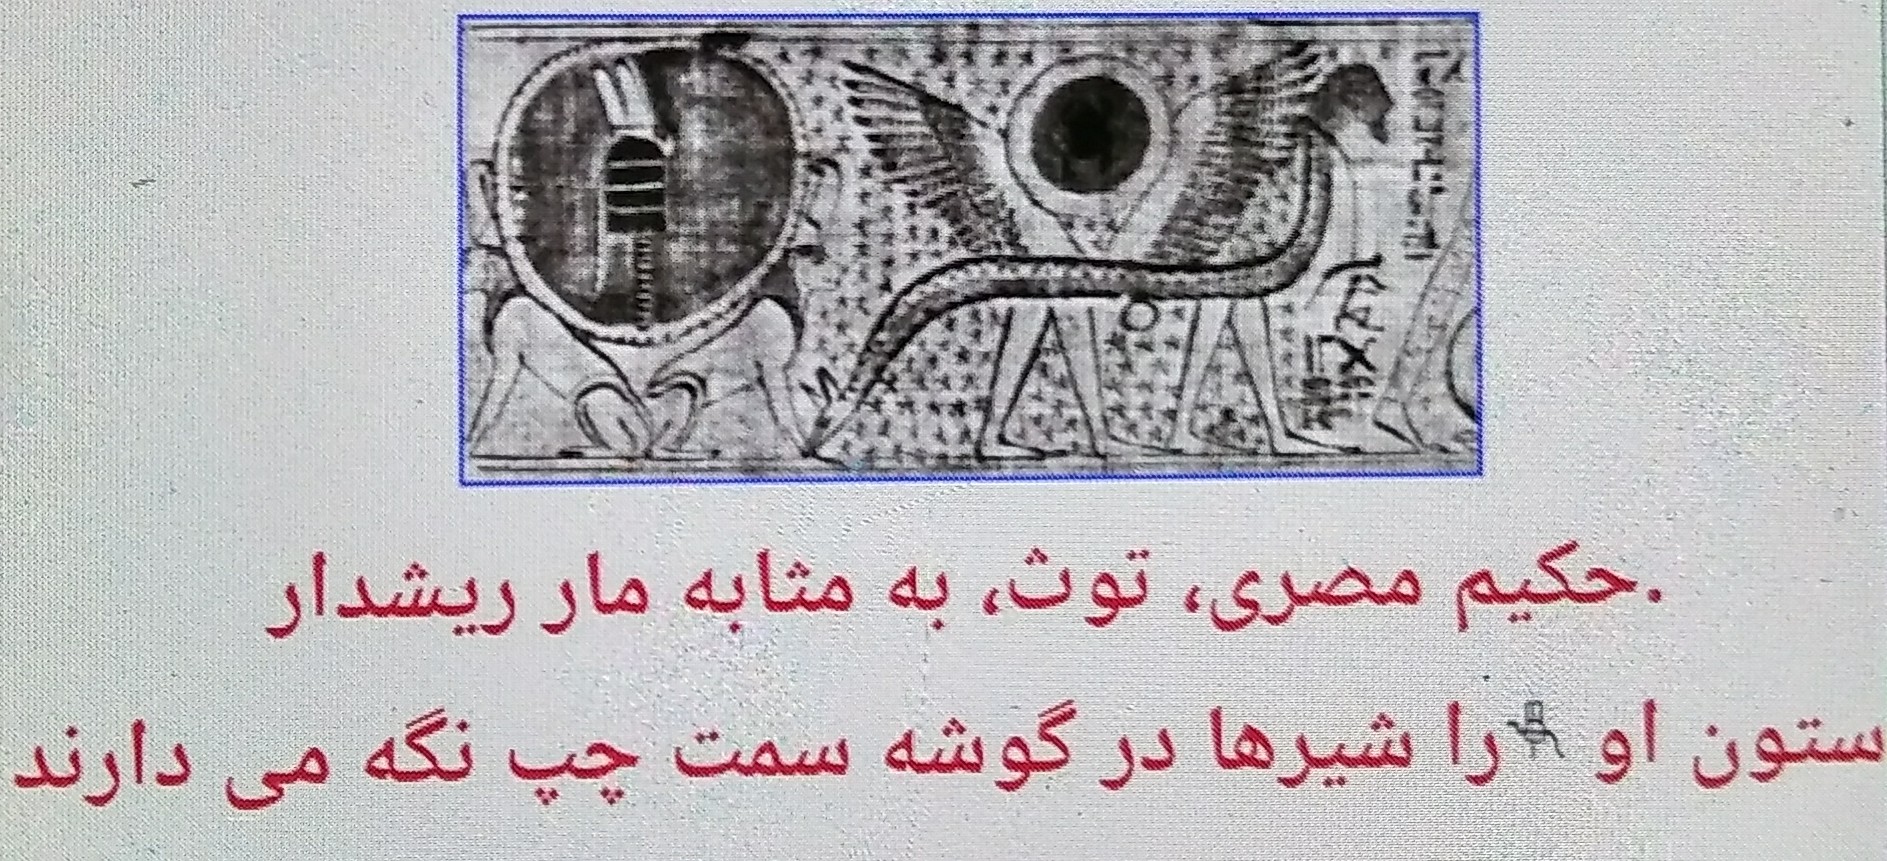 حکیم مصری، توث، به مثابه مار ریشدار.
ستون او را شیرها در گوشه سمت چپ نگه می دارند